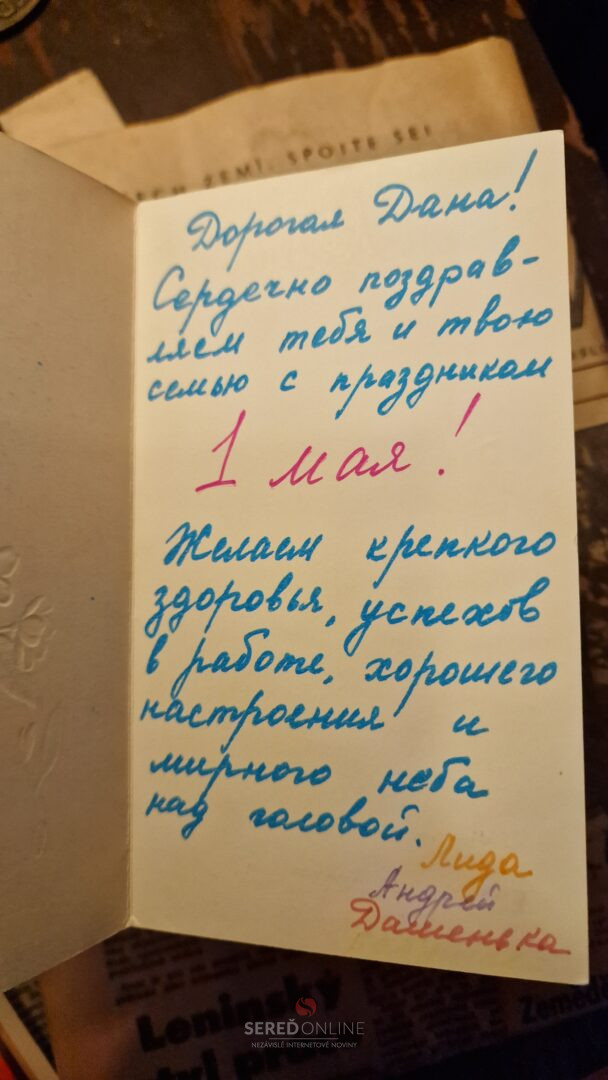 ZEMÍ, SPOJTE SE!
Дорогая Дана!
Сердечно поздрав-
ляем тебя и твою
семью с праздником
1 мая!
Желаем крепкого
здоровья, успехов
в работе, хорошего
настроения и
мирного неба
над головой.
Лида
Андрей
Дашенька
Leninský
SEREĎONLINE
NEZÁVISLÉ INTERNETOVÉ NOVINY